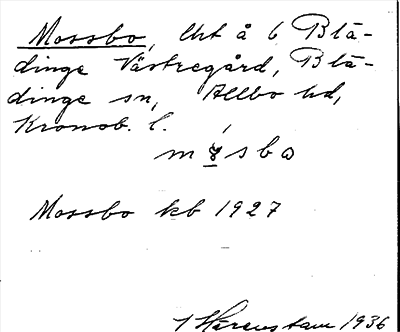 Mossbo, lht å 6 Blä-
dinge Västregård, Blä-
dinge sn, Allbo hd,
Kronob. l.
m s b ω
Mossbo kb 1927
Härenstam 1936